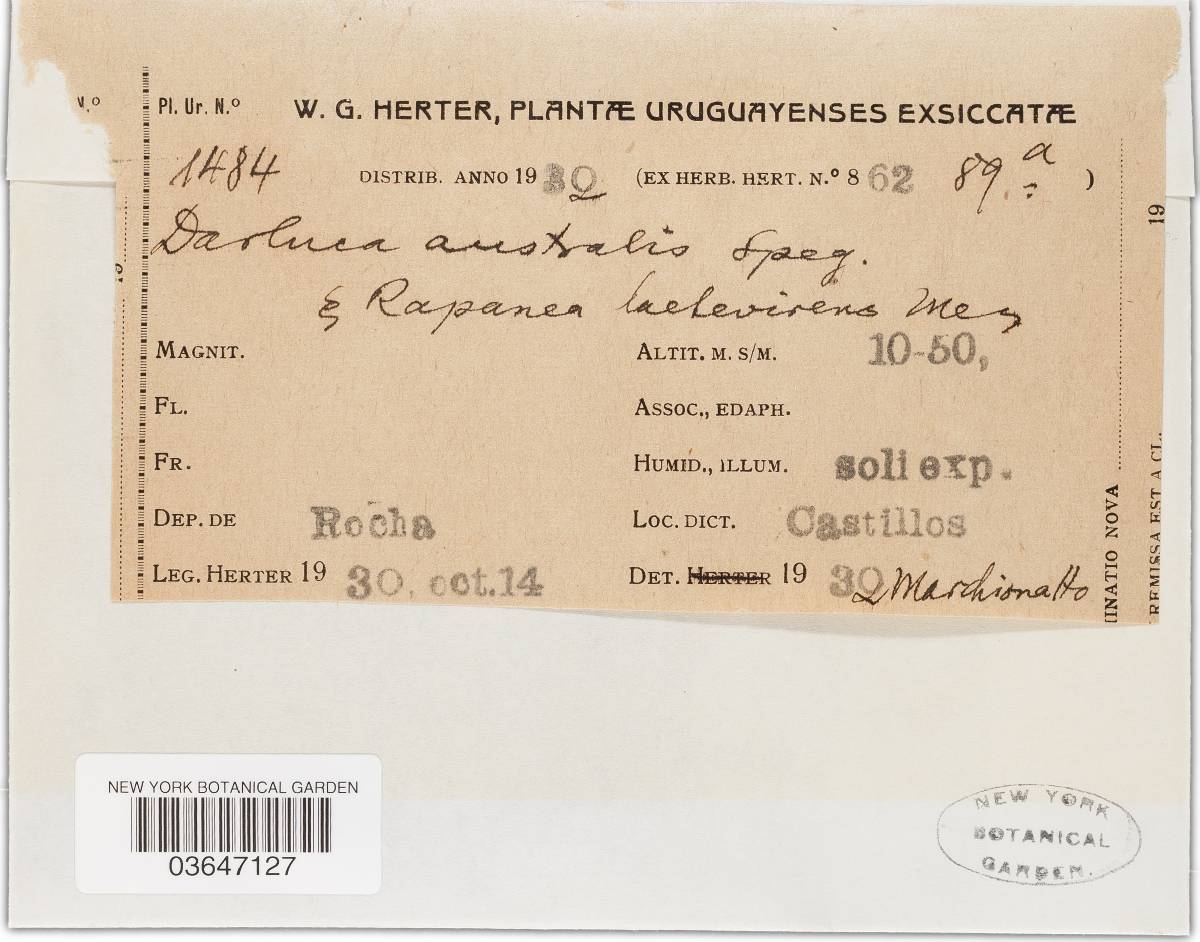 Pl. Ur. N.º W. G. HERTER, PLANTÆ URUGUAYENSES EXSICCATÆ
1484 DISTRIB. ANNO 1930 (EX HERB. HERT. N.º 862 89.a )
Darluca australis Speg.
Rapanea laetevirens Mez
MAGNIT. ALTIT. M. S/M. 10-50,
FL. ASSOC., EDAPH.
FR. HUMID., ILLUM. soli exp.
DEP. DE Rocha LOC. DICT. Castillos
LEG. HERTER 19 30, oct. 14 DET. HERTER 19 30 Marchionatto
N.º
19
INATIO NOVA
REMISSA EST A CL.
NEW YORK BOTANICAL GARDEN
03647127
NEW YORK
BOTANICAL
GARDEN.